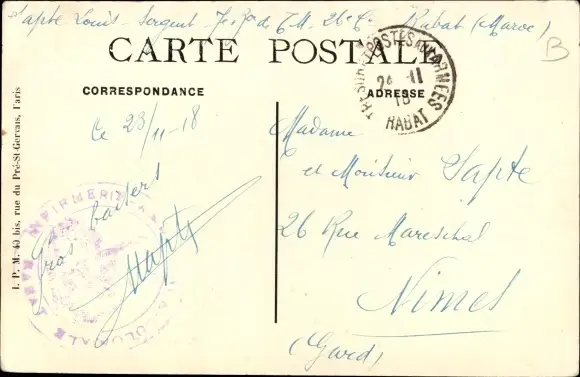 Sapte Louis - Sergent - 7e Bon de T.M. 26e Cie Rabat (Maroc)
CARTE POSTALE
TRESOR ET POSTES AUX ARMEES
24 -11
18
RABAT
B
CORRESPONDANCE
ADRESSE
Ce 23/11-18
Gros baisers
Sapte
Madame
et Monsieur Sapte
26 Rue Mareschal
Nimes
(Gard)
I. P. M. 40 bis, rue du Pré-St-Gervais, Paris
INFIRMERIE
RABAT